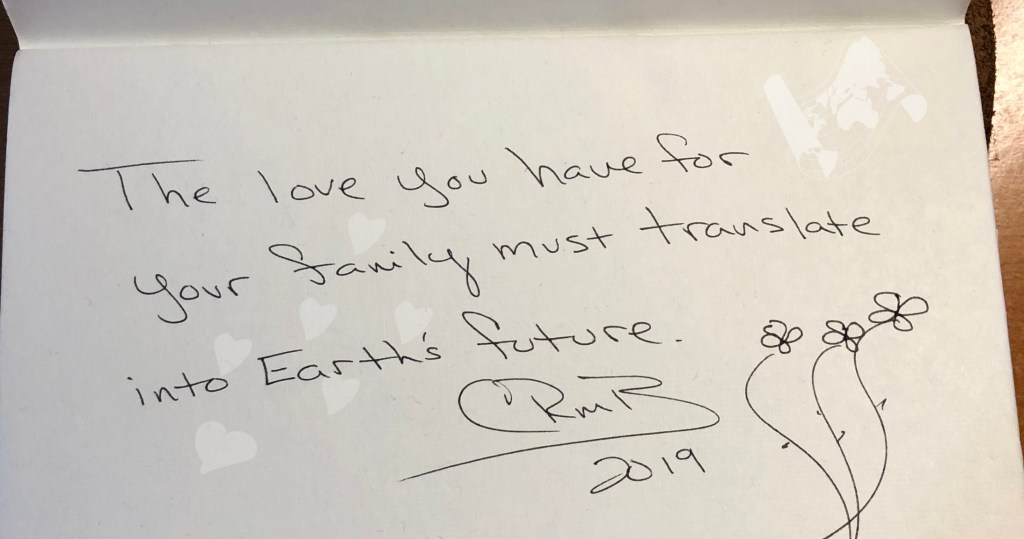 The love you have for
your family must translate
into Earth's future.
CRMB
2019